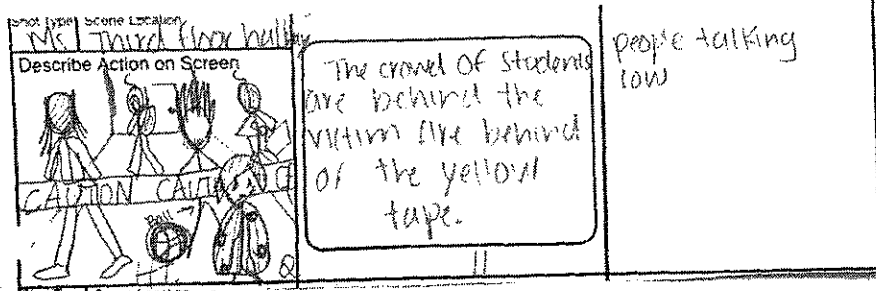 Shot Type Scene Location
MS Third floor hallway
Describe Action on Screen
CAUTION CAUTI
Ball
The crowd Of Students
are behind the
victim are behind
of the yellow
tape.
people talking
low
11